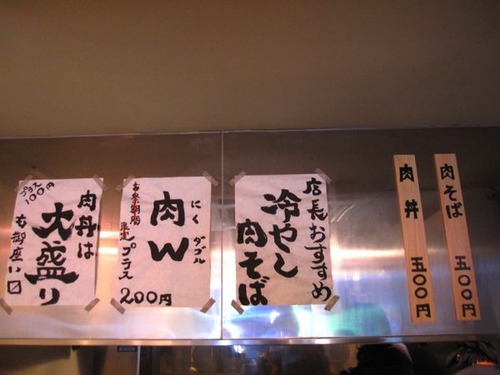 肉そば 五〇〇円
肉丼 五〇〇円
店長おすすめ
冷やし
肉そば
にく ダブル
肉W
プラス
200円
プラス
100円
肉丼は
大盛り